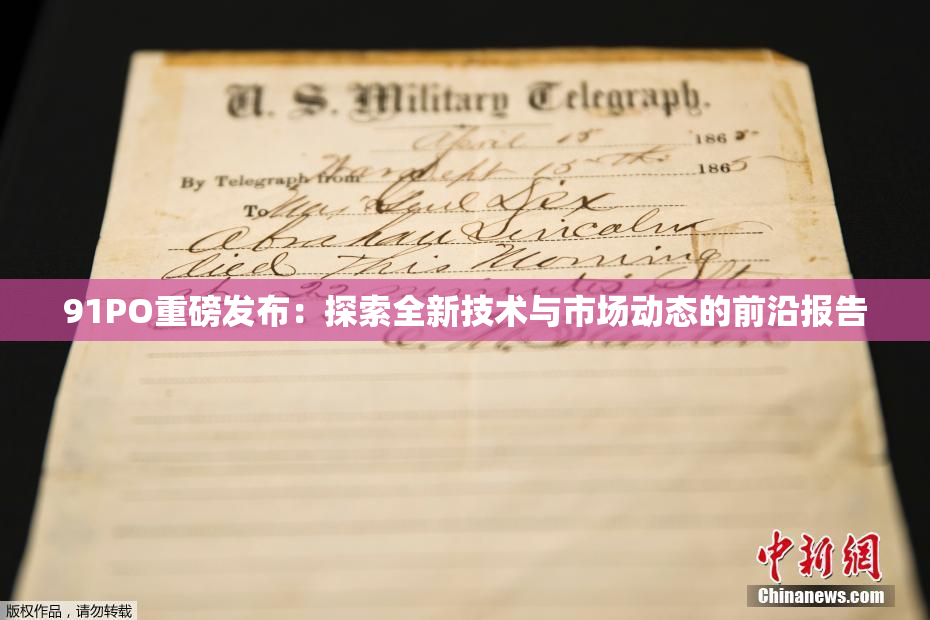 U. S. Military Telegraph.
April 15 1865
By Telegraph from War Dept 15th 1865
To Maj Genl Dix
Abraham Lincoln
died This Morning
at 22 minutes after
91PO重磅发布：探索全新技术与市场动态的前沿报告
E. M. Stanton
中新网
Chinanews.com
版权作品，请勿转载